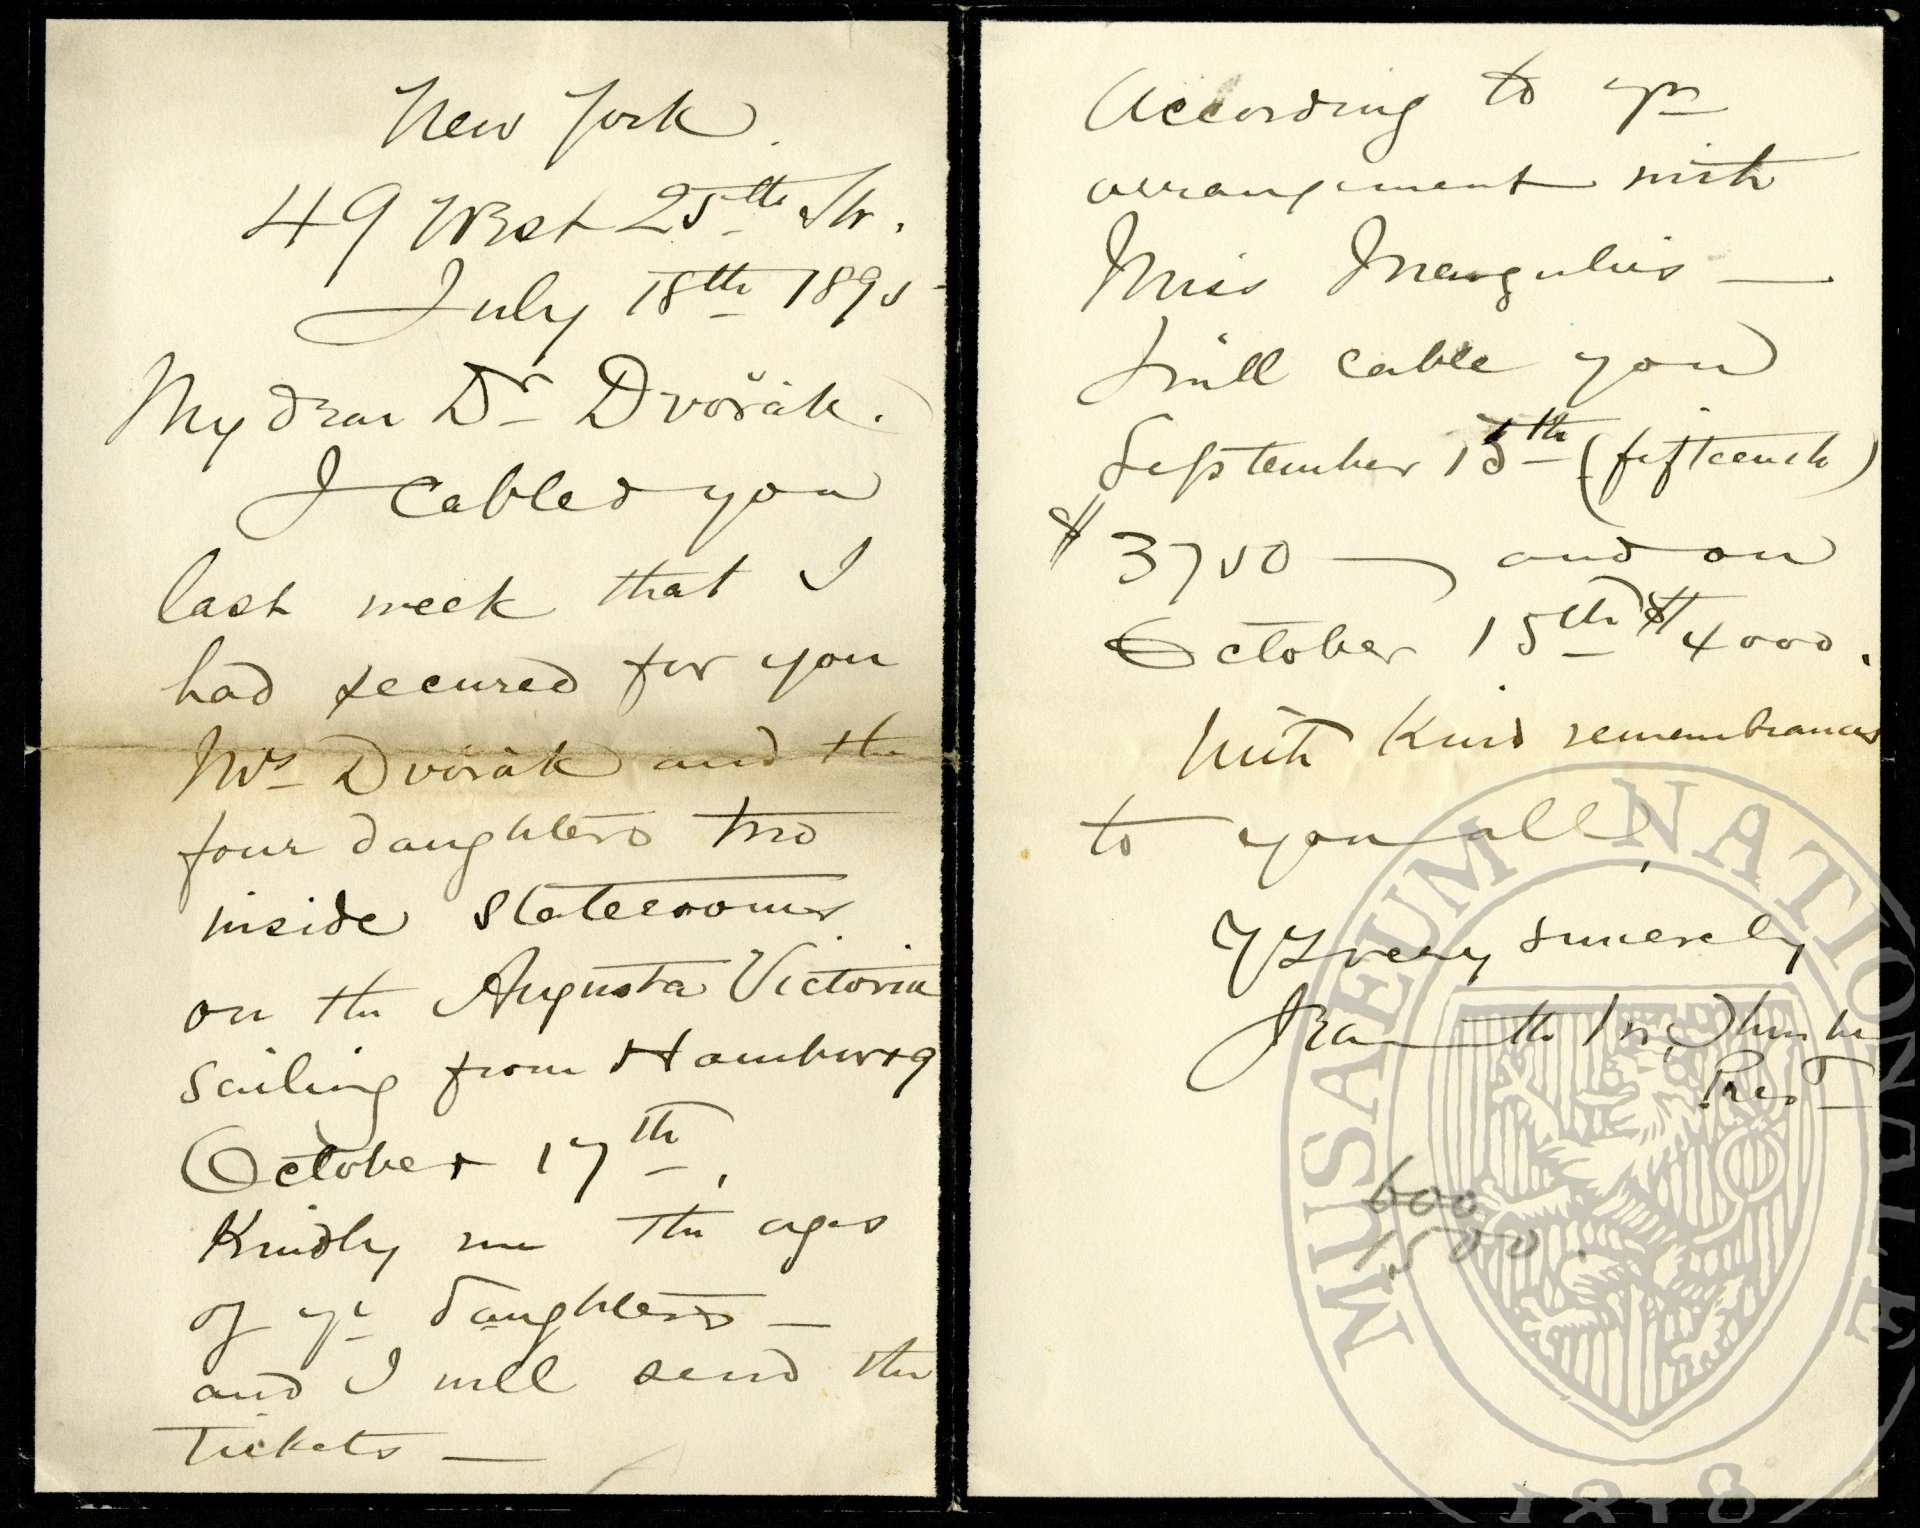 New York.
49 West 25th Str.
July 18th 1895
My dear Dr Dvořák.
I cabled you
last week that I
had secured for you
Mrs Dvořák and the
four daughters two
inside staterooms
on the Augusta Victoria
sailing from Hamburg
October 17th,
Kindly me the ages
of yr daughters —
and I will send the
Tickets —
According to yr
arrangement with
Miss Margulies —
I will cable you
September 15th (fifteenth)
$ 3750 — and on
October 15th $ 4000.
With Kind remembrances
to you all,
Yrs very sincerely
Jeannette M. Thurber
Pres
600
1500.
MUSAEUM NATIONALE
1818